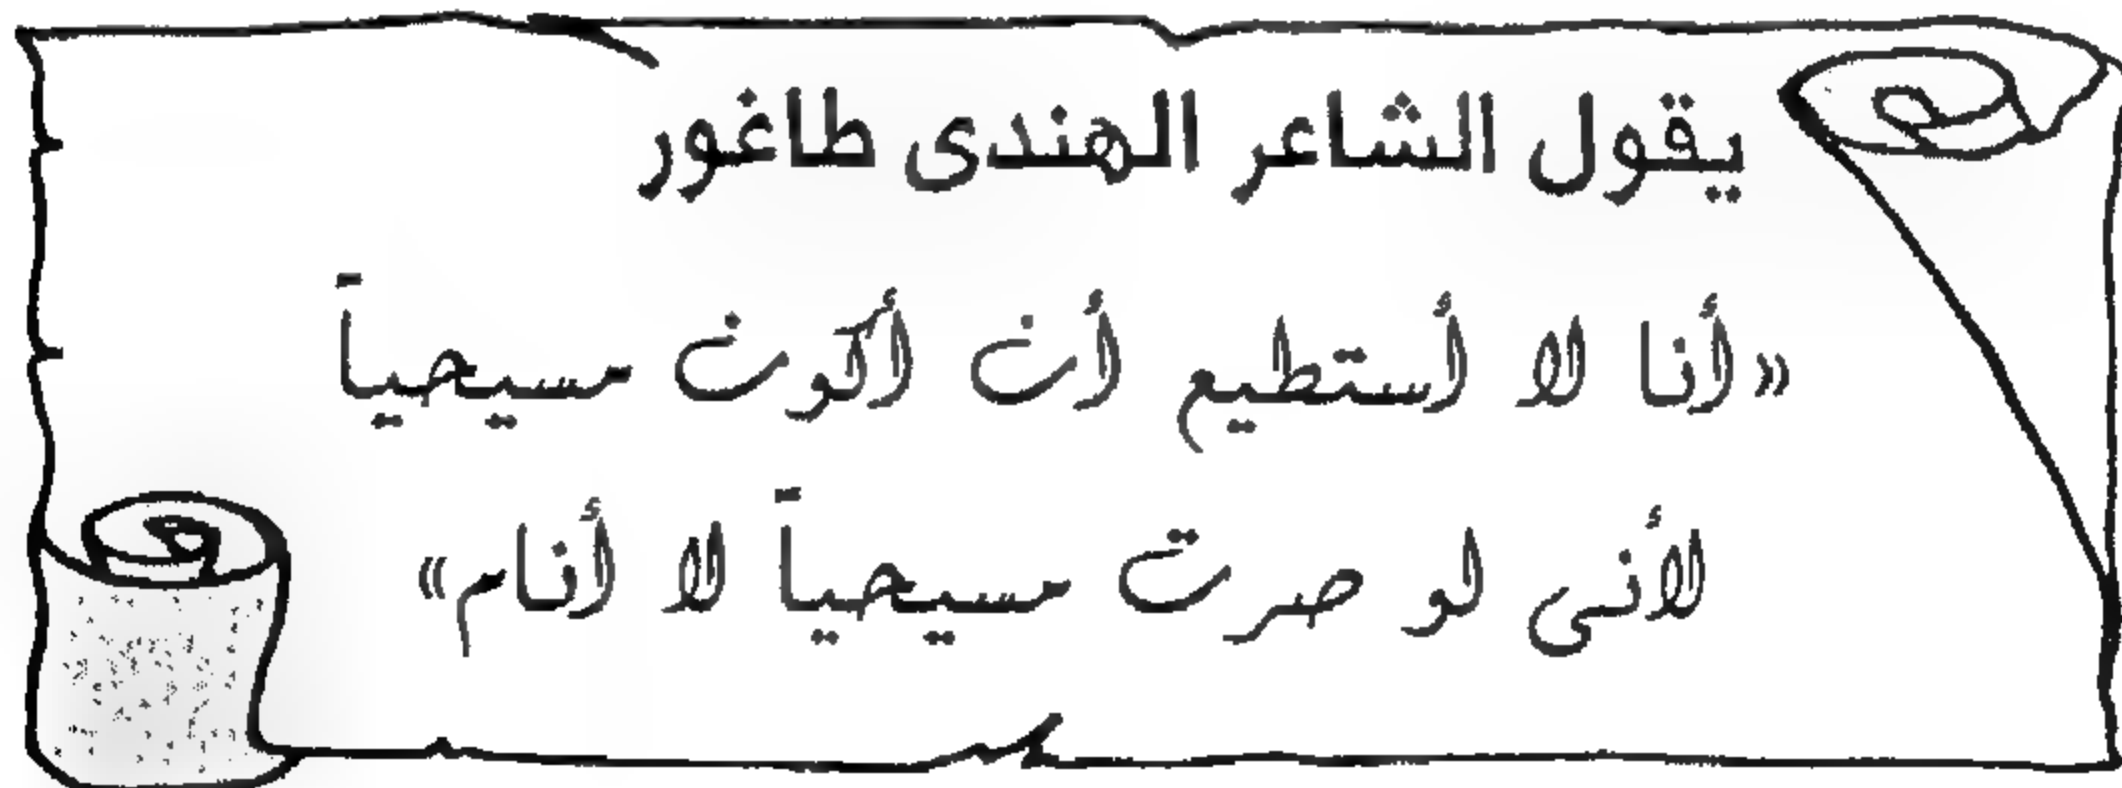 يقول الشاعر الهندى طاغور
«أنا لا أستطيع أن أكون مسيحياً
لأنى لو صرت مسيحياً لا أنام»